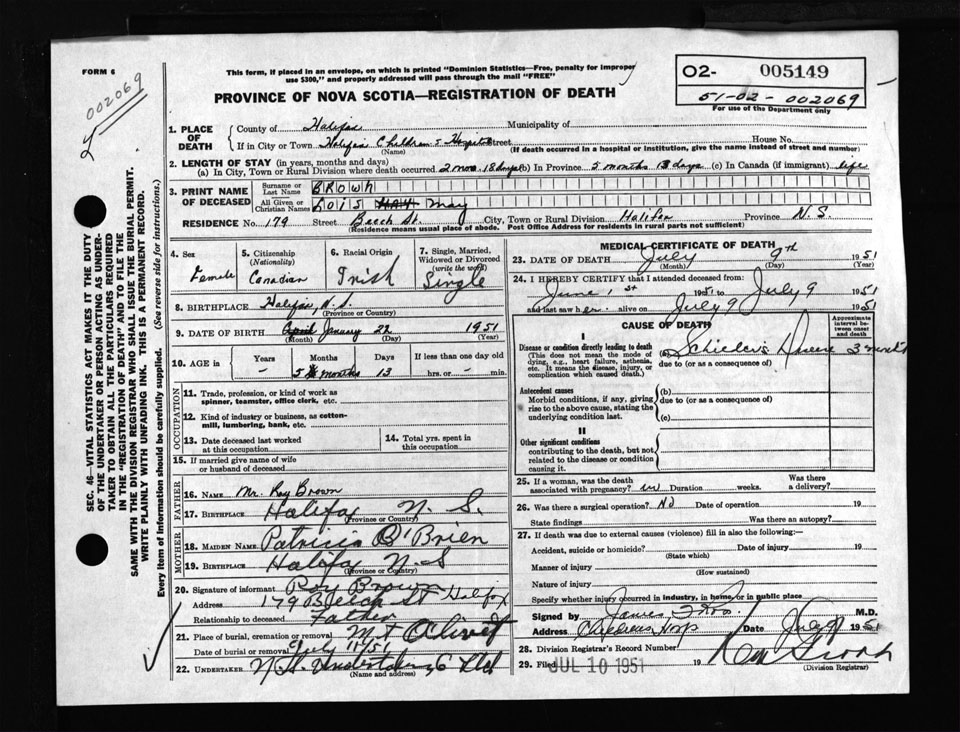 FORM 6
002069
This form, if placed in an envelope, on which is printed "Dominion Statistics—Free, penalty for improper
use $300," and properly addressed will pass through the mail "FREE"
PROVINCE OF NOVA SCOTIA—REGISTRATION OF DEATH
02- 005149
51-02-002069
For use of the Department only
1. PLACE OF DEATH
County of Halifax Municipality of
If in City or Town Halifax Children's Hospital Street House No.
(Name) (If death occurred in a hospital or institution, give the name instead of street and number)
2. LENGTH OF STAY (in years, months and days)
(a) In City, Town or Rural Division where death occurred 2 mos. 18 days (b) In Province 5 months 13 days (c) In Canada (if immigrant) life
3. PRINT NAME OF DECEASED
Surname or Last Name BROWN
All Given or Christian Names LOIS MAY May
RESIDENCE No. 179 Street Beech St. City, Town or Rural Division Halifax Province N.S.
(Residence means usual place of abode. Post Office Address for residents in rural parts not sufficient)
4. Sex Female
5. Citizenship (Nationality) Canadian
6. Racial Origin Irish
7. Single, Married, Widowed or Divorced (write the word) Single
8. BIRTHPLACE Halifax, N.S.
(Province or Country)
9. DATE OF BIRTH April January 22 1951
(Month) (Day) (Year)
10. AGE in Years Months Days If less than one day old
- 5 months 13 hrs. or - min.
OCCUPATION
11. Trade, profession, or kind of work as spinner, teamster, office clerk, etc.
12. Kind of industry or business, as cotton-mill, lumbering, bank, etc.
13. Date deceased last worked at this occupation
14. Total yrs. spent in this occupation
15. If married give name of wife or husband of deceased
FATHER
16. NAME Mr. Roy Brown
17. BIRTHPLACE Halifax N.S.
(Province or Country)
MOTHER
18. MAIDEN NAME Patricia O'Brien
19. BIRTHPLACE Halifax N S
(Province or Country)
20. Signature of informant Roy Brown
Address 179 Beech St Halifax
Relationship to deceased Father
21. Place of burial, cremation or removal Mt Olivet
Date of burial or removal July 11/51
22. UNDERTAKER N.S. Undertaking Co Ltd
(Name and address)
MEDICAL CERTIFICATE OF DEATH
23. DATE OF DEATH July 9th 1951
(Month) (Day) (Year)
24. I HEREBY CERTIFY that I attended deceased from
June 1st 1951 to July 9 1951
and last saw her alive on July 9 1951
CAUSE OF DEATH
Approximate interval between onset and death
I
Disease or condition directly leading to death
(This does not mean the mode of dying, e.g., heart failure, asthenia, etc. It means the disease, injury, or complication which caused death.)
(a) Schilder's Disease 3 months
due to (or as a consequence of)
Antecedent causes
Morbid conditions, if any, giving rise to the above cause, stating the underlying condition last.
(b)
due to (or as a consequence of)
(c)
II
Other significant conditions
contributing to the death, but not related to the disease or condition causing it.
25. If a woman, was the death associated with pregnancy? no Duration weeks. Was there a delivery?
26. Was there a surgical operation? NO Date of operation 19
State findings Was there an autopsy?
27. If death was due to external causes (violence) fill in also the following:—
Accident, suicide or homicide? Date of injury 19
(State which)
Manner of injury
(How sustained)
Nature of injury
Specify whether injury occurred in industry, in home, or in public place
Signed by James F. Ross M.D.
Address Childrens Hosp Date July 9 1951
28. Division Registrar's Record Number
29. Filed JUL 10 1951 19
(Division Registrar)
SEC. 46—VITAL STATISTICS ACT MAKES IT THE DUTY
OF THE UNDERTAKER OR PERSON ACTING AS UNDER-
TAKER TO OBTAIN ALL THE PARTICULARS REQUIRED
IN THE "REGISTRATION OF DEATH" AND TO FILE THE
SAME WITH THE DIVISION REGISTRAR WHO SHALL ISSUE THE BURIAL PERMIT.
WRITE PLAINLY WITH UNFADING INK. THIS IS A PERMANENT RECORD.
Every item of Information should be carefully supplied. (See reverse side for instructions.)